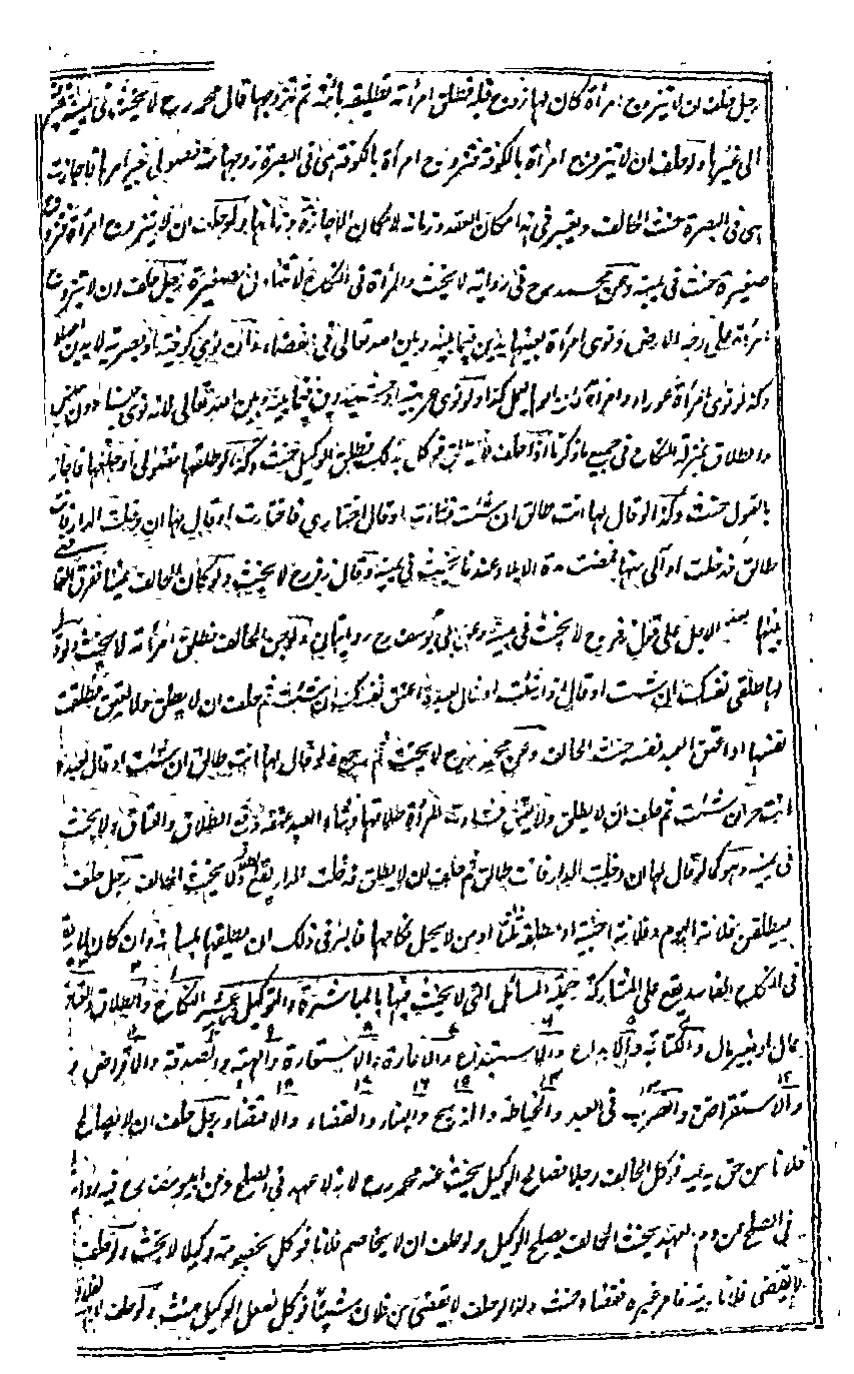 رجل حلف ان لا يتزوج امرأة كان لها زوج قبله فطلق امرأته تطليقة بائنة ثم تزوجها قال محمد رح لا يحنث فى يمينه
الى غيرها ولو حلف ان لا يتزوج امرأة بالكوفة فتزوج امرأة بالكوفة هى فى البصرة زوجها منه فضولى بغير امرها فاجازت
هى فى البصرة حنث الحالف ويعتبر فى هذا مكان العقد وزمانه لا مكان الاجازة وزمانها ولو حلف ان لا يتزوج امرأة فتزوج
صغيرة حنث فى يمينه وعن محمد رح فى رواية لا يحنث والمرأة فى النكاح لا تتناول الصغيرة رجل حلف ان لا يتزوج
امرأة على وجه الارض ونوى امرأة بعينها يدين فيما بينه وبين الله تعالى لا فى القضاء وان نوى كوفية او بصرية لا يدين اصلا
وكذا لو نوى امرأة عوراء او امرأة كان ابوها يعمل كذا ولو نوى عربية او حبشية دين فيما بينه وبين الله تعالى لانه نوى جنسا دون جنس
والطلاق بمنزلة النكاح فى جميع ما ذكرنا اذا حلف لا يطلق فوكل بذلك فطلق الوكيل حنث وكذا لو طلقها فضولى او خلعها فاجاز
بالقول حنث وكذا لو قال لها انت طالق ان شئت فشاءت او قال اختارى فاختارت او قال لها ان دخلت الدار فانت
طالق فدخلت او آلى منها فمضت مدة الايلاء عندنا يحنث فى يمينه وقال زفر رح لا يحنث ولو كان الحالف عنينا ففرق القاضى
بينهما بعد الاجل على قول زفر رح لا يحنث فى يمينه وعن ابى يوسف رح روايتان ولو جن الحالف فطلق امرأته لا يحنث ولو قال
لها طلقى نفسك ان شئت او قال اذا شئت او قال لعبده اعتق نفسك ان شئت ثم حلف ان لا يطلق ولا يعتق فطلقت
نفسها او اعتق العبد نفسه حنث الحالف وعن محمد رح لا يحنث ثم رجع ولو قال لها انت طالق ان شئت او قال لعبده
انت حر ان شئت ثم حلف ان لا يطلق ولا يعتق فشاءت المرأة طلاقها وشاء العبد عتقه وقع الطلاق والعتاق ولا يحنث
فى يمينه وهو كما لو قال لها ان دخلت الدار فانت طالق ثم حلف ان لا يطلق فدخلت الدار يقع الطلاق ولا يحنث الحالف رجل حلف
ليطلقن فلانة اليوم وفلانة اجنبية او مطلقة ثلثا او من لا يحل نكاحها فالبر فى ذلك ان يطلقها بلسانه وان كان لا يقع
فى النكاح الفاسد يقع على المشاركة جملة المسائل التى لا يحنث فيها بالمباشرة والتوكيل عشر النكاح والطلاق والعتاق
بمال او بغير مال والكتابة والايداع والاستيداع والاعارة والاستعارة والهبة والصدقة والاقراض
والاستقراض والضرب فى العبد والخياطة والذبح والبناء والقضاء والاقتضاء رجل حلف ان لا يصالح
فلانا من حق يدعيه فوكل الحالف رجلا فصالح الوكيل يحنث عند محمد رح لانه لا عهدة فى الصلح وعن ابى يوسف رح فيه روايتان
فى الصلح عن دم العمد يحنث الحالف بصلح الوكيل ولو حلف ان لا يخاصم فلانا فوكل بخصومته وكيلا لا يحنث ولو حلف
لا يقضى فلانا دينه فامر غيره فقضاه حنث ولو حلف لا يقضى من فلان شيئا فوكل ففعل الوكيل حنث ولو حلف لا